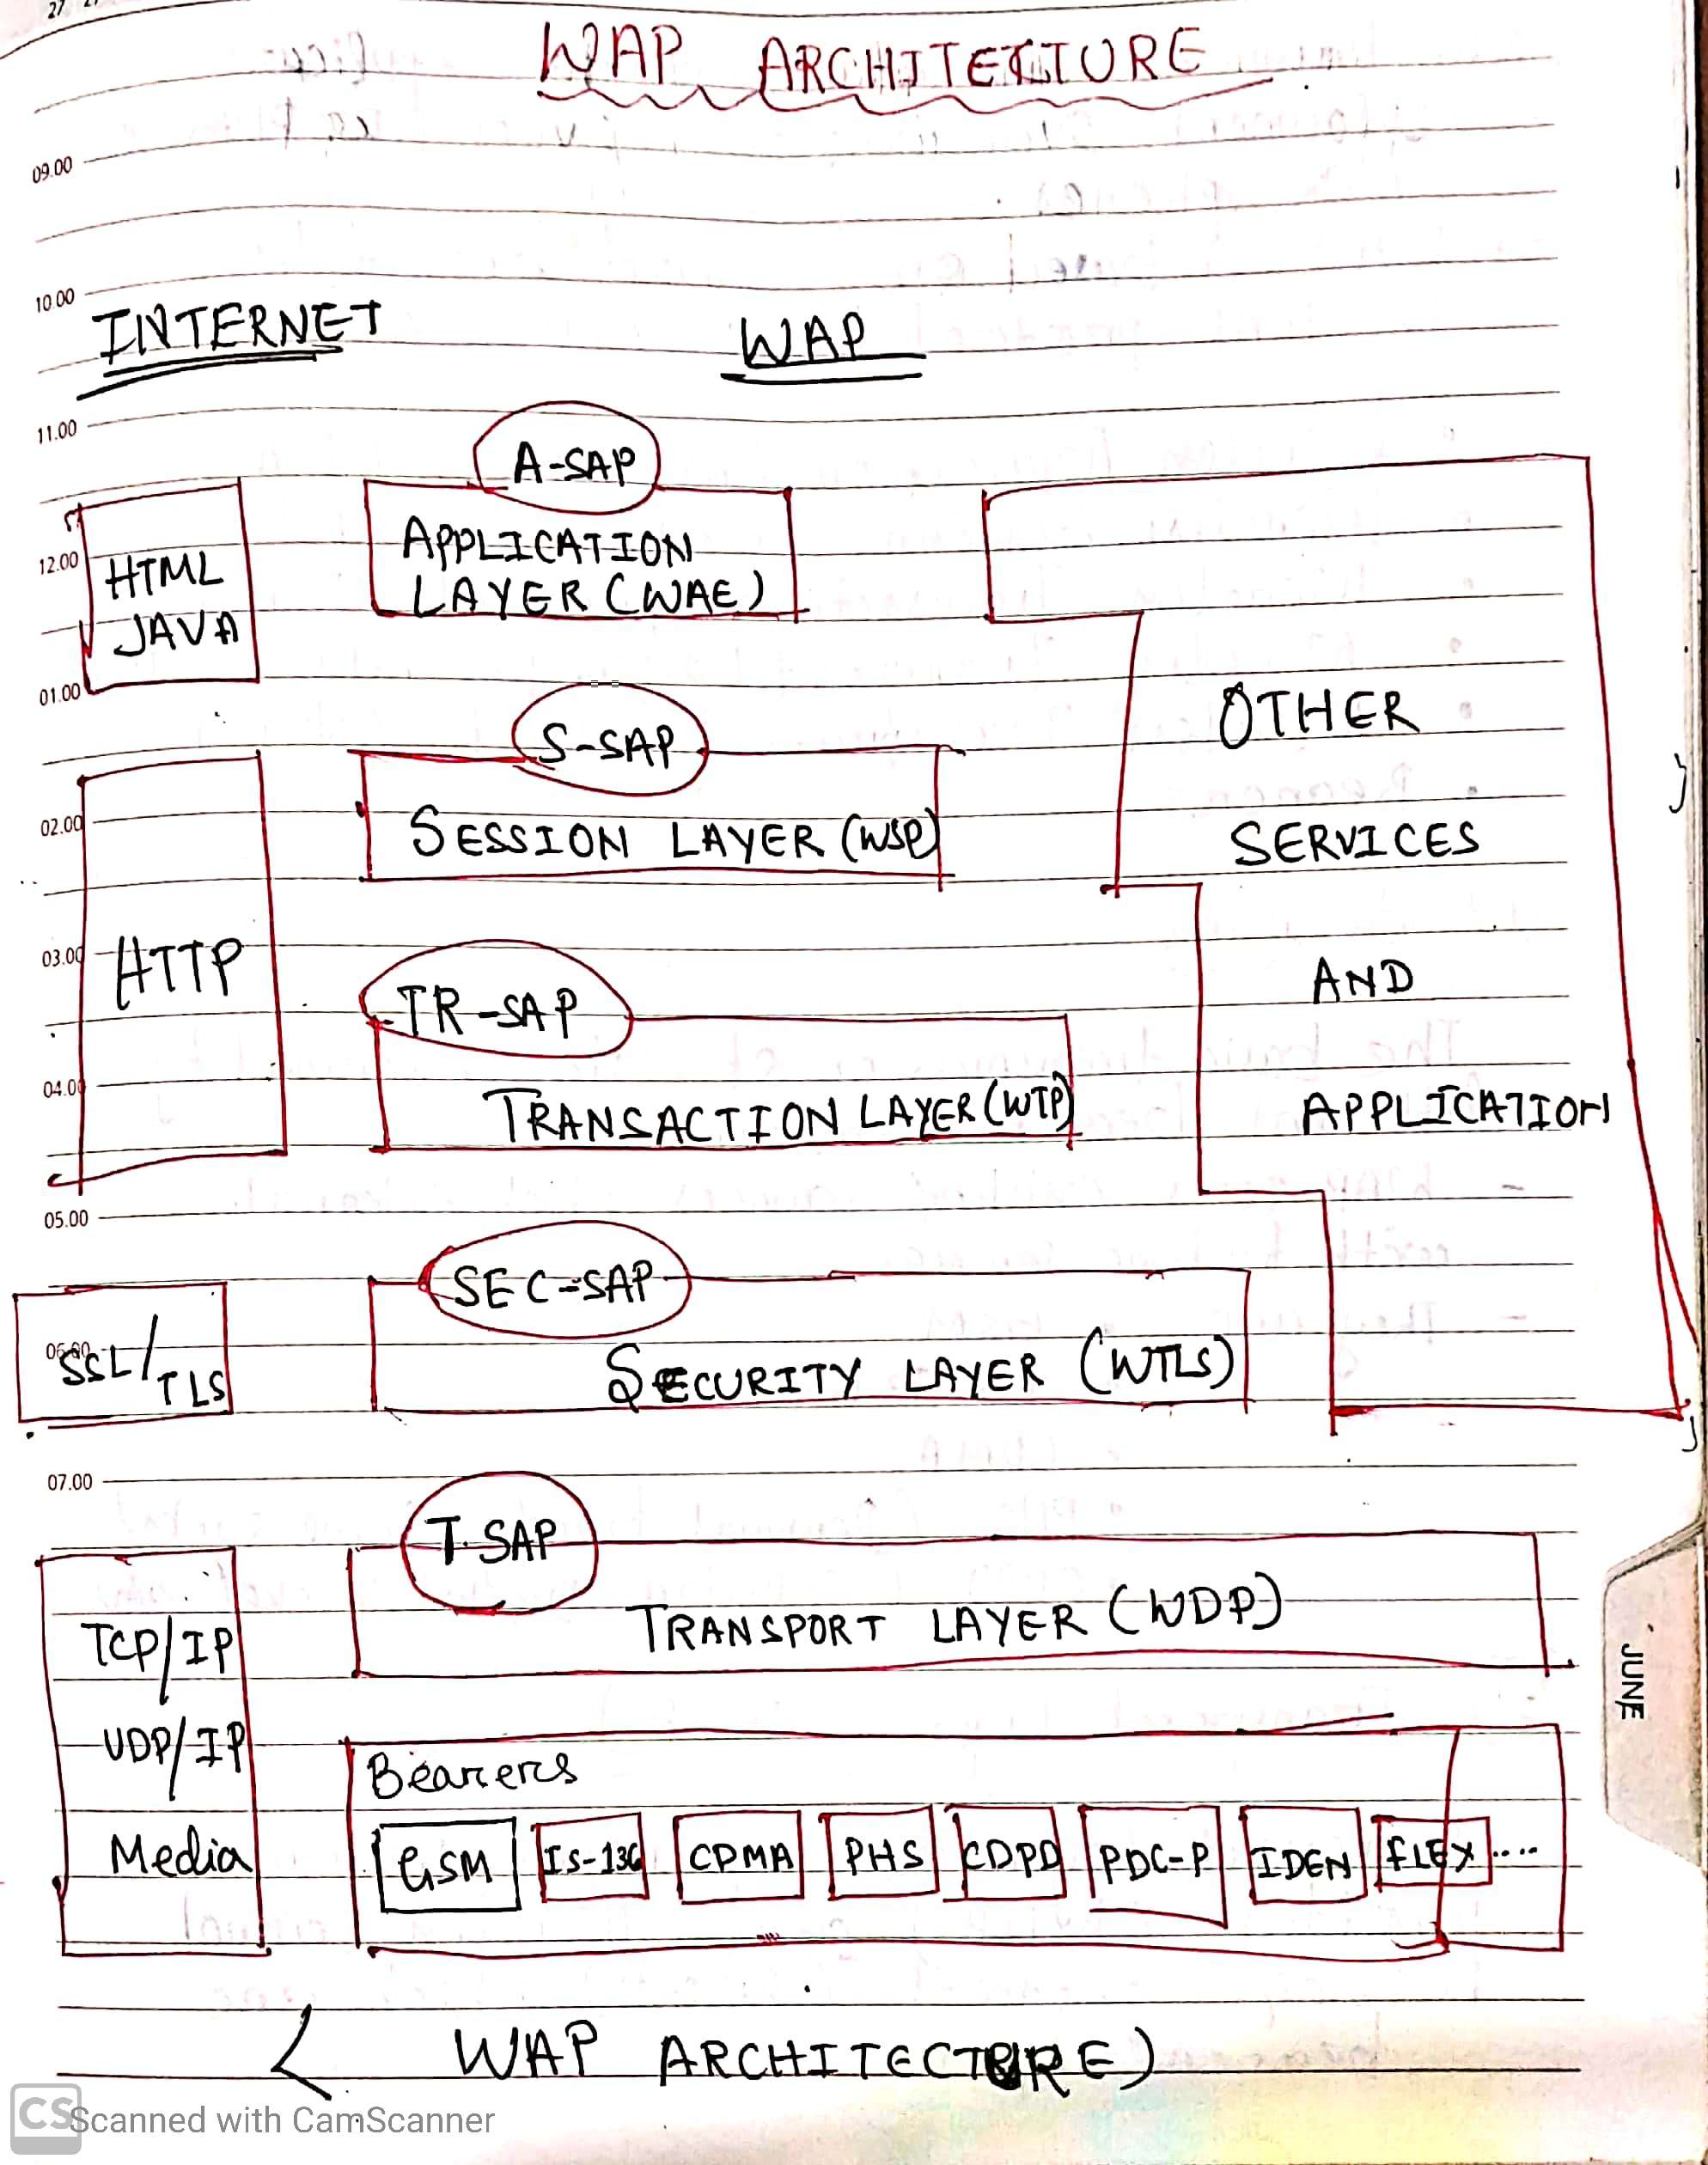 27
WAP ARCHITECTURE
09.00
10.00
INTERNET
WAP
11.00
A-SAP
12.00
HTML
JAVA
APPLICATION
LAYER (WAE)
01.00
OTHER
S-SAP
02.00
SESSION LAYER (WSP)
SERVICES
03.00
HTTP
AND
TR-SAP
04.00
TRANSACTION LAYER (WTP)
APPLICATION
05.00
SEC-SAP
06.00
SSL/TLS
SECURITY LAYER (WTLS)
07.00
T-SAP
TCP/IP
TRANSPORT LAYER (WDP)
JUNE
UDP/IP
Bearers
Media
GSM IS-136 CDMA PHS CDPD PDC-P IDEN FLEX ....
( WAP ARCHITECTURE)
CS Scanned with CamScanner